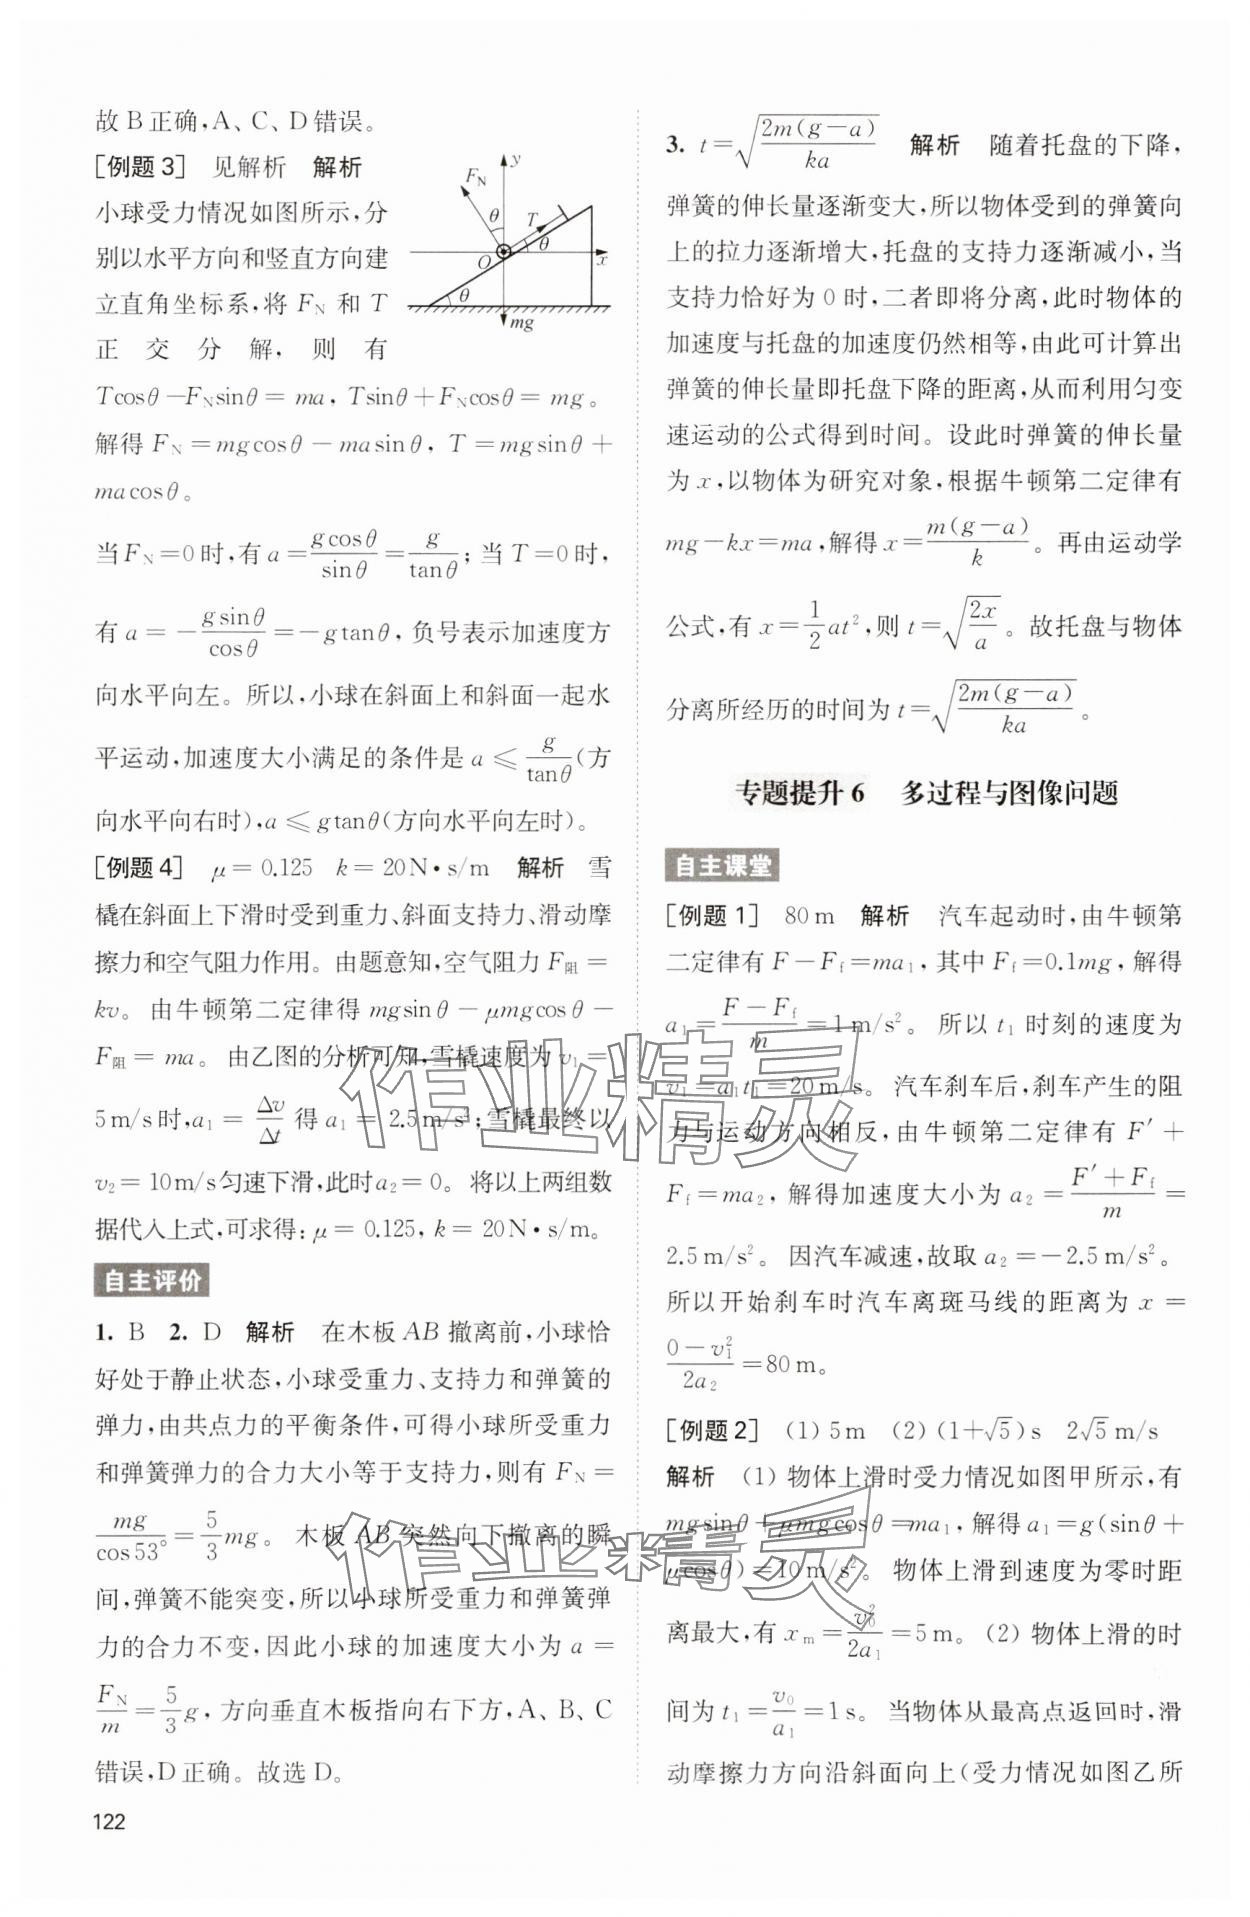 故B正确,A、C、D错误。
[例题3] 见解析 解析
小球受力情况如图所示,分
别以水平方向和竖直方向建
立直角坐标系,将 F_N 和 T
正交分解,则有
Tcosθ-F_Nsinθ=ma,Tsinθ+F_Ncosθ=mg。
解得 F_N=mgcosθ-masinθ,T=mgsinθ+
macosθ。
当F_N=0时,有a=gcosθ/sinθ=g/tanθ;当T=0时,
有a=-gsinθ/cosθ=-gtanθ,负号表示加速度方
向水平向左。所以,小球在斜面上和斜面一起水
平运动,加速度大小满足的条件是a≤g/tanθ(方
向水平向右时),a≤gtanθ(方向水平向左时)。
[例题4] μ=0.125 k=20N·s/m 解析 雪
橇在斜面上下滑时受到重力、斜面支持力、滑动摩
擦力和空气阻力作用。由题意知,空气阻力F阻=
kv。由牛顿第二定律得 mgsinθ-μmgcosθ-
F阻=ma。由乙图的分析可知,雪橇速度为v₁=
5m/s时,a₁=Δv/Δt得a₁=2.5m/s²;雪橇最终以
v₂=10m/s匀速下滑,此时a₂=0。将以上两组数
据代入上式,可求得:μ=0.125,k=20N·s/m。
自主评价
1. B 2. D 解析 在木板AB撤离前,小球恰
好处于静止状态,小球受重力、支持力和弹簧的
弹力,由共点力的平衡条件,可得小球所受重力
和弹簧弹力的合力大小等于支持力,则有F_N=
mg/cos53°=5/3mg。木板AB突然向下撤离的瞬
间,弹簧不能突变,所以小球所受重力和弹簧弹
力的合力不变,因此小球的加速度大小为a=
F_N/m=5/3g,方向垂直木板指向右下方,A、B、C
错误,D正确。故选D。
122
F_N
y
θ
T
θ
O
x
θ
mg
3. t=√(2m(g-a)/ka) 解析 随着托盘的下降,
弹簧的伸长量逐渐变大,所以物体受到的弹簧向
上的拉力逐渐增大,托盘的支持力逐渐减小,当
支持力恰好为0时,二者即将分离,此时物体的
加速度与托盘的加速度仍然相等,由此可计算出
弹簧的伸长量即托盘下降的距离,从而利用匀变
速运动的公式得到时间。设此时弹簧的伸长量
为x,以物体为研究对象,根据牛顿第二定律有
mg-kx=ma,解得x=m(g-a)/k。再由运动学
公式,有x=1/2at²,则t=√(2x/a)。故托盘与物体
分离所经历的时间为t=√(2m(g-a)/ka)。
专题提升6 多过程与图像问题
自主课堂
[例题1] 80m 解析 汽车起动时,由牛顿第
二定律有F-F_f=ma₁,其中F_f=0.1mg,解得
a₁=(F-F_f)/m=1m/s²。所以t₁时刻的速度为
v₁=a₁t₁=20m/s。汽车刹车后,刹车产生的阻
力与运动方向相反,由牛顿第二定律有F′+
F_f=ma₂,解得加速度大小为a₂=(F′+F_f)/m=
2.5m/s²。因汽车减速,故取a₂=-2.5m/s²。
所以开始刹车时汽车离斑马线的距离为x=
(0-v₁²)/2a₂=80m。
[例题2] (1)5m (2)(1+√5)s 2√5m/s
解析 (1)物体上滑时受力情况如图甲所示,有
mgsinθ+μmgcosθ=ma₁,解得a₁=g(sinθ+
μcosθ)=10m/s²。物体上滑到速度为零时距
离最大,有x_m=v₀²/2a₁=5m。(2)物体上滑的时
间为t₁=v₀/a₁=1s。当物体从最高点返回时,滑
动摩擦力方向沿斜面向上(受力情况如图乙所
作业精灵
作业精灵